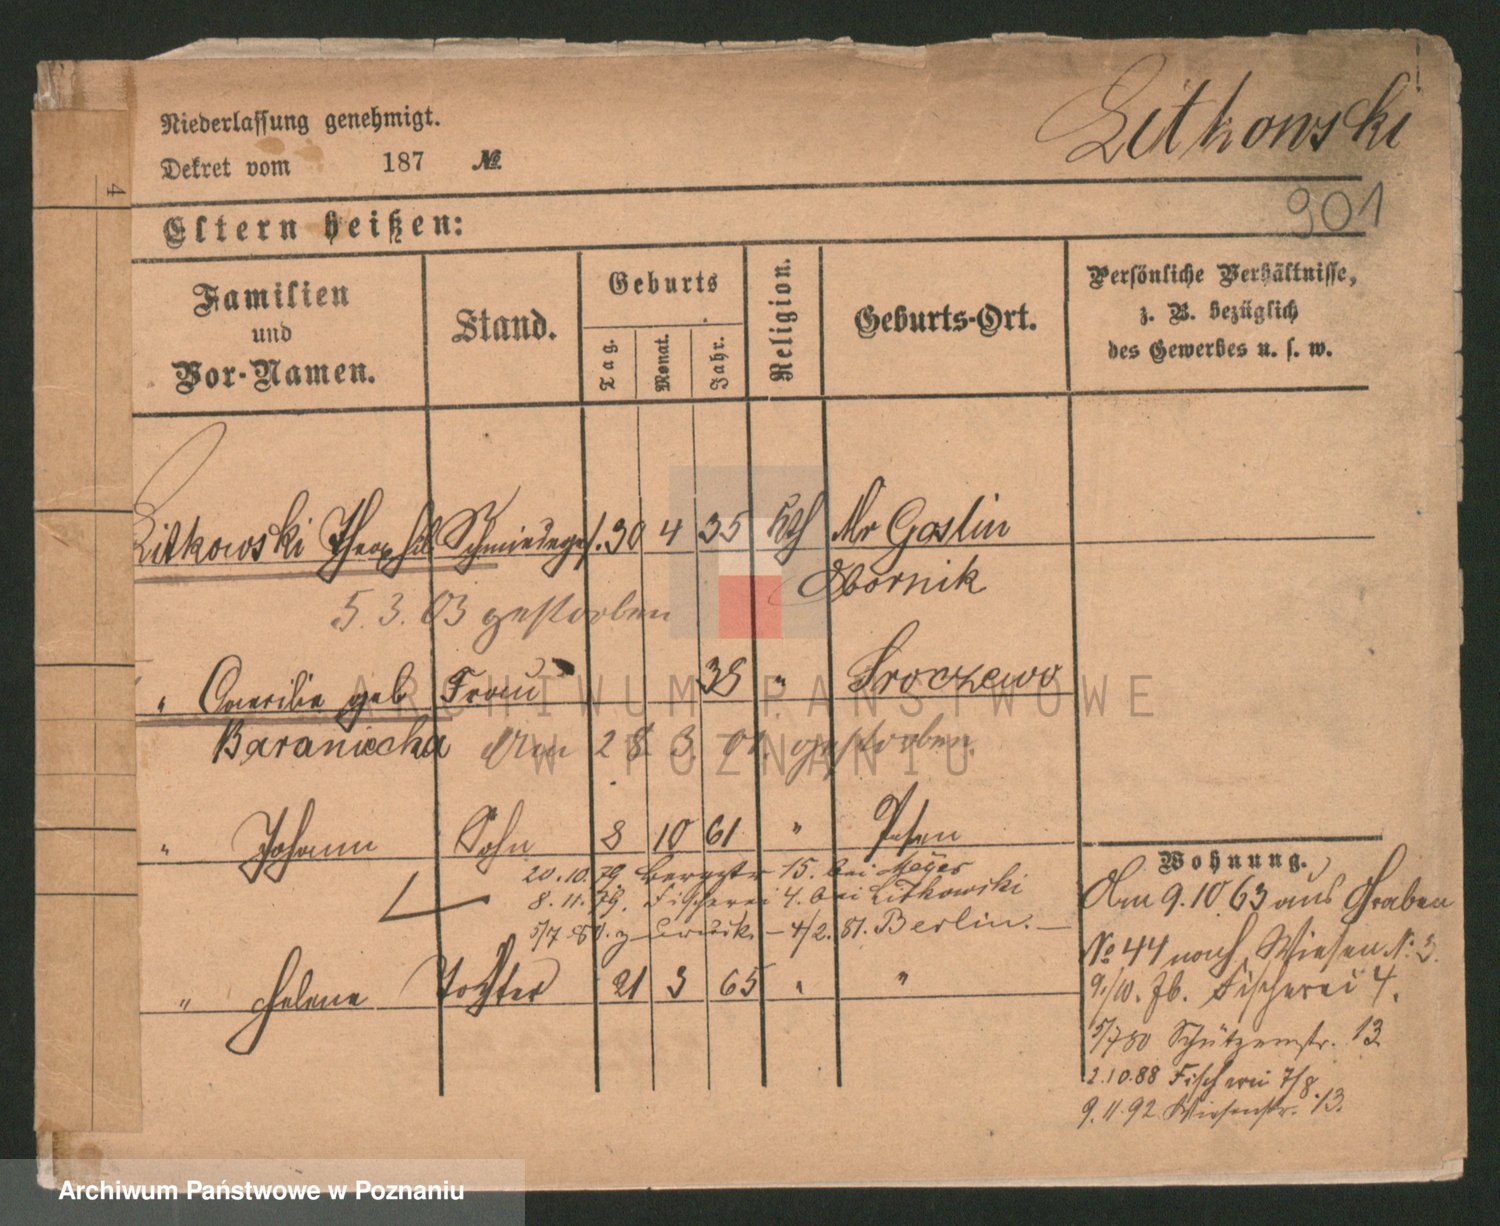 Niederlassung genehmigt.
Litkowski
Dekret vom 187 №
901
4
Eltern heißen:
Familien
und
Vor-Namen.
Stand.
Geburts
Tag.
Monat.
Jahr.
Religion.
Geburts-Ort.
Persönliche Verhältnisse,
z. B. bezüglich
des Gewerbes u. s. w.
Litkowski Theophil Schmiedeges. 30 4 35 kath Mr Goslin
Obornik
5. 3. 03 gestorben
" geb Frau 38 " Sroczewo
Baraniecka Am 28 3. 01. gestorben.
" Johann Sohn 8 10 61 " Posen
20. 10. 79. Bergstr 15. bei Meyer
8. 11. 79. Fischerei 4. bei Litkowski
5/7 80. zurück – 4/2. 81. Berlin. –
" Helene Tochter 21 3 65 " "
Wohnung.
Am 9. 10 63 aus Graben
№ 44 nach Wiesen N: 3.
9/10. 76. Fischerei 4.
5/7 80 Schützenstr. 13
2. 10. 88 Fischerei 7/8.
9. 11. 92 Wiesenstr. 13.
ARCHIWUM PAŃSTWOWE
W POZNANIU
Archiwum Państwowe w Poznaniu